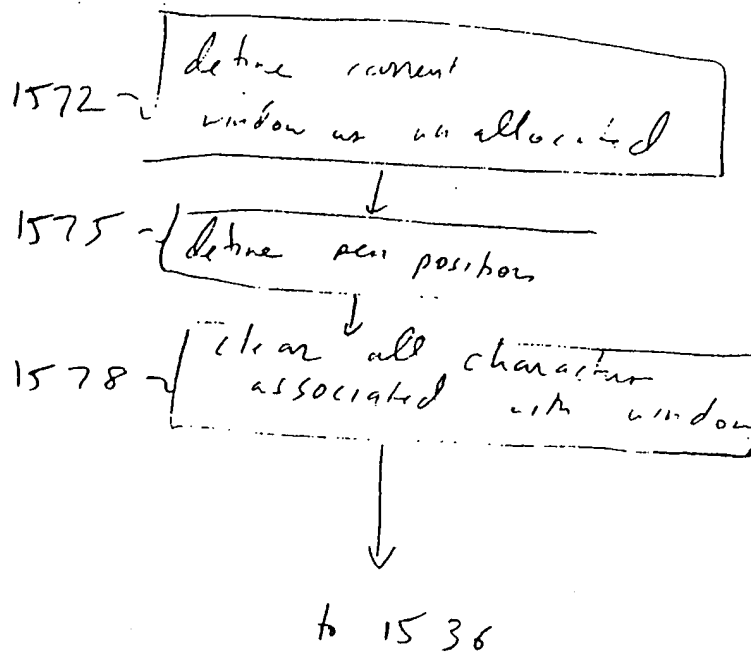 1572
define current
window as unallocated
1575
define pen position
1578
clear all characters
associated with window
to 1536